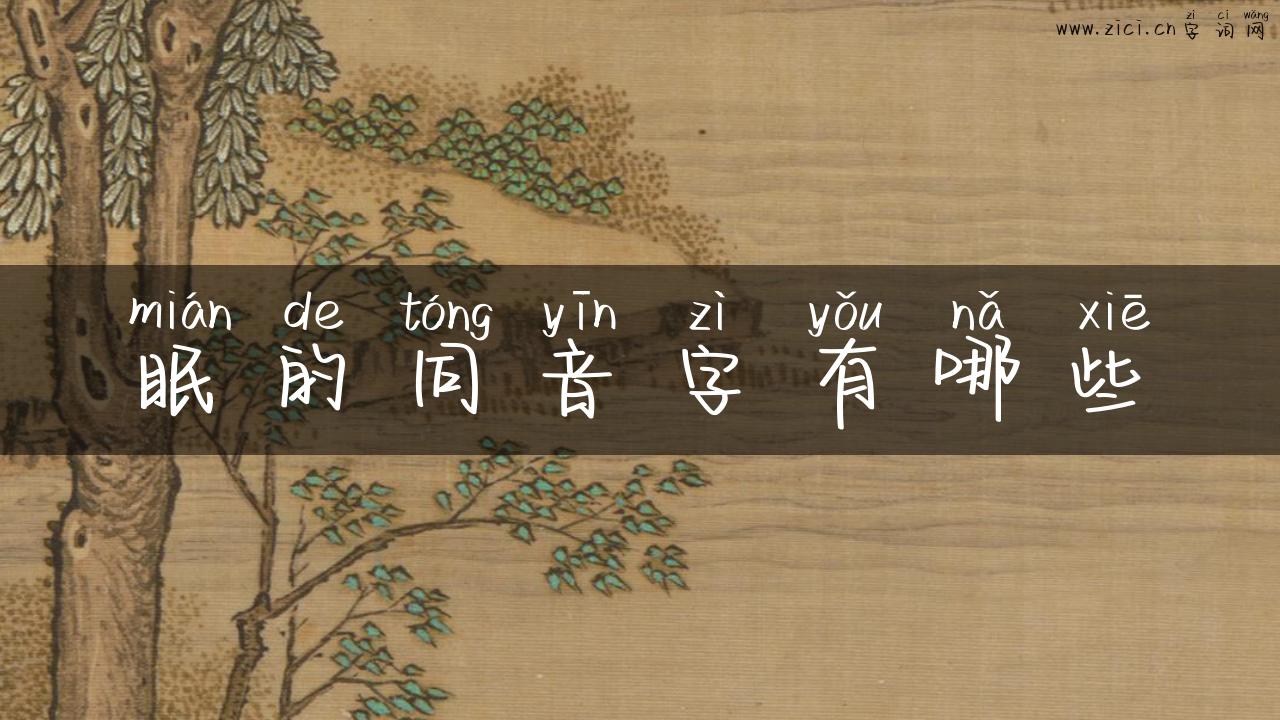 zì cí wǎng
www.zici.cn 字词网
mián de tóng yīn zì yǒu nǎ xiē
眠的同音字有哪些